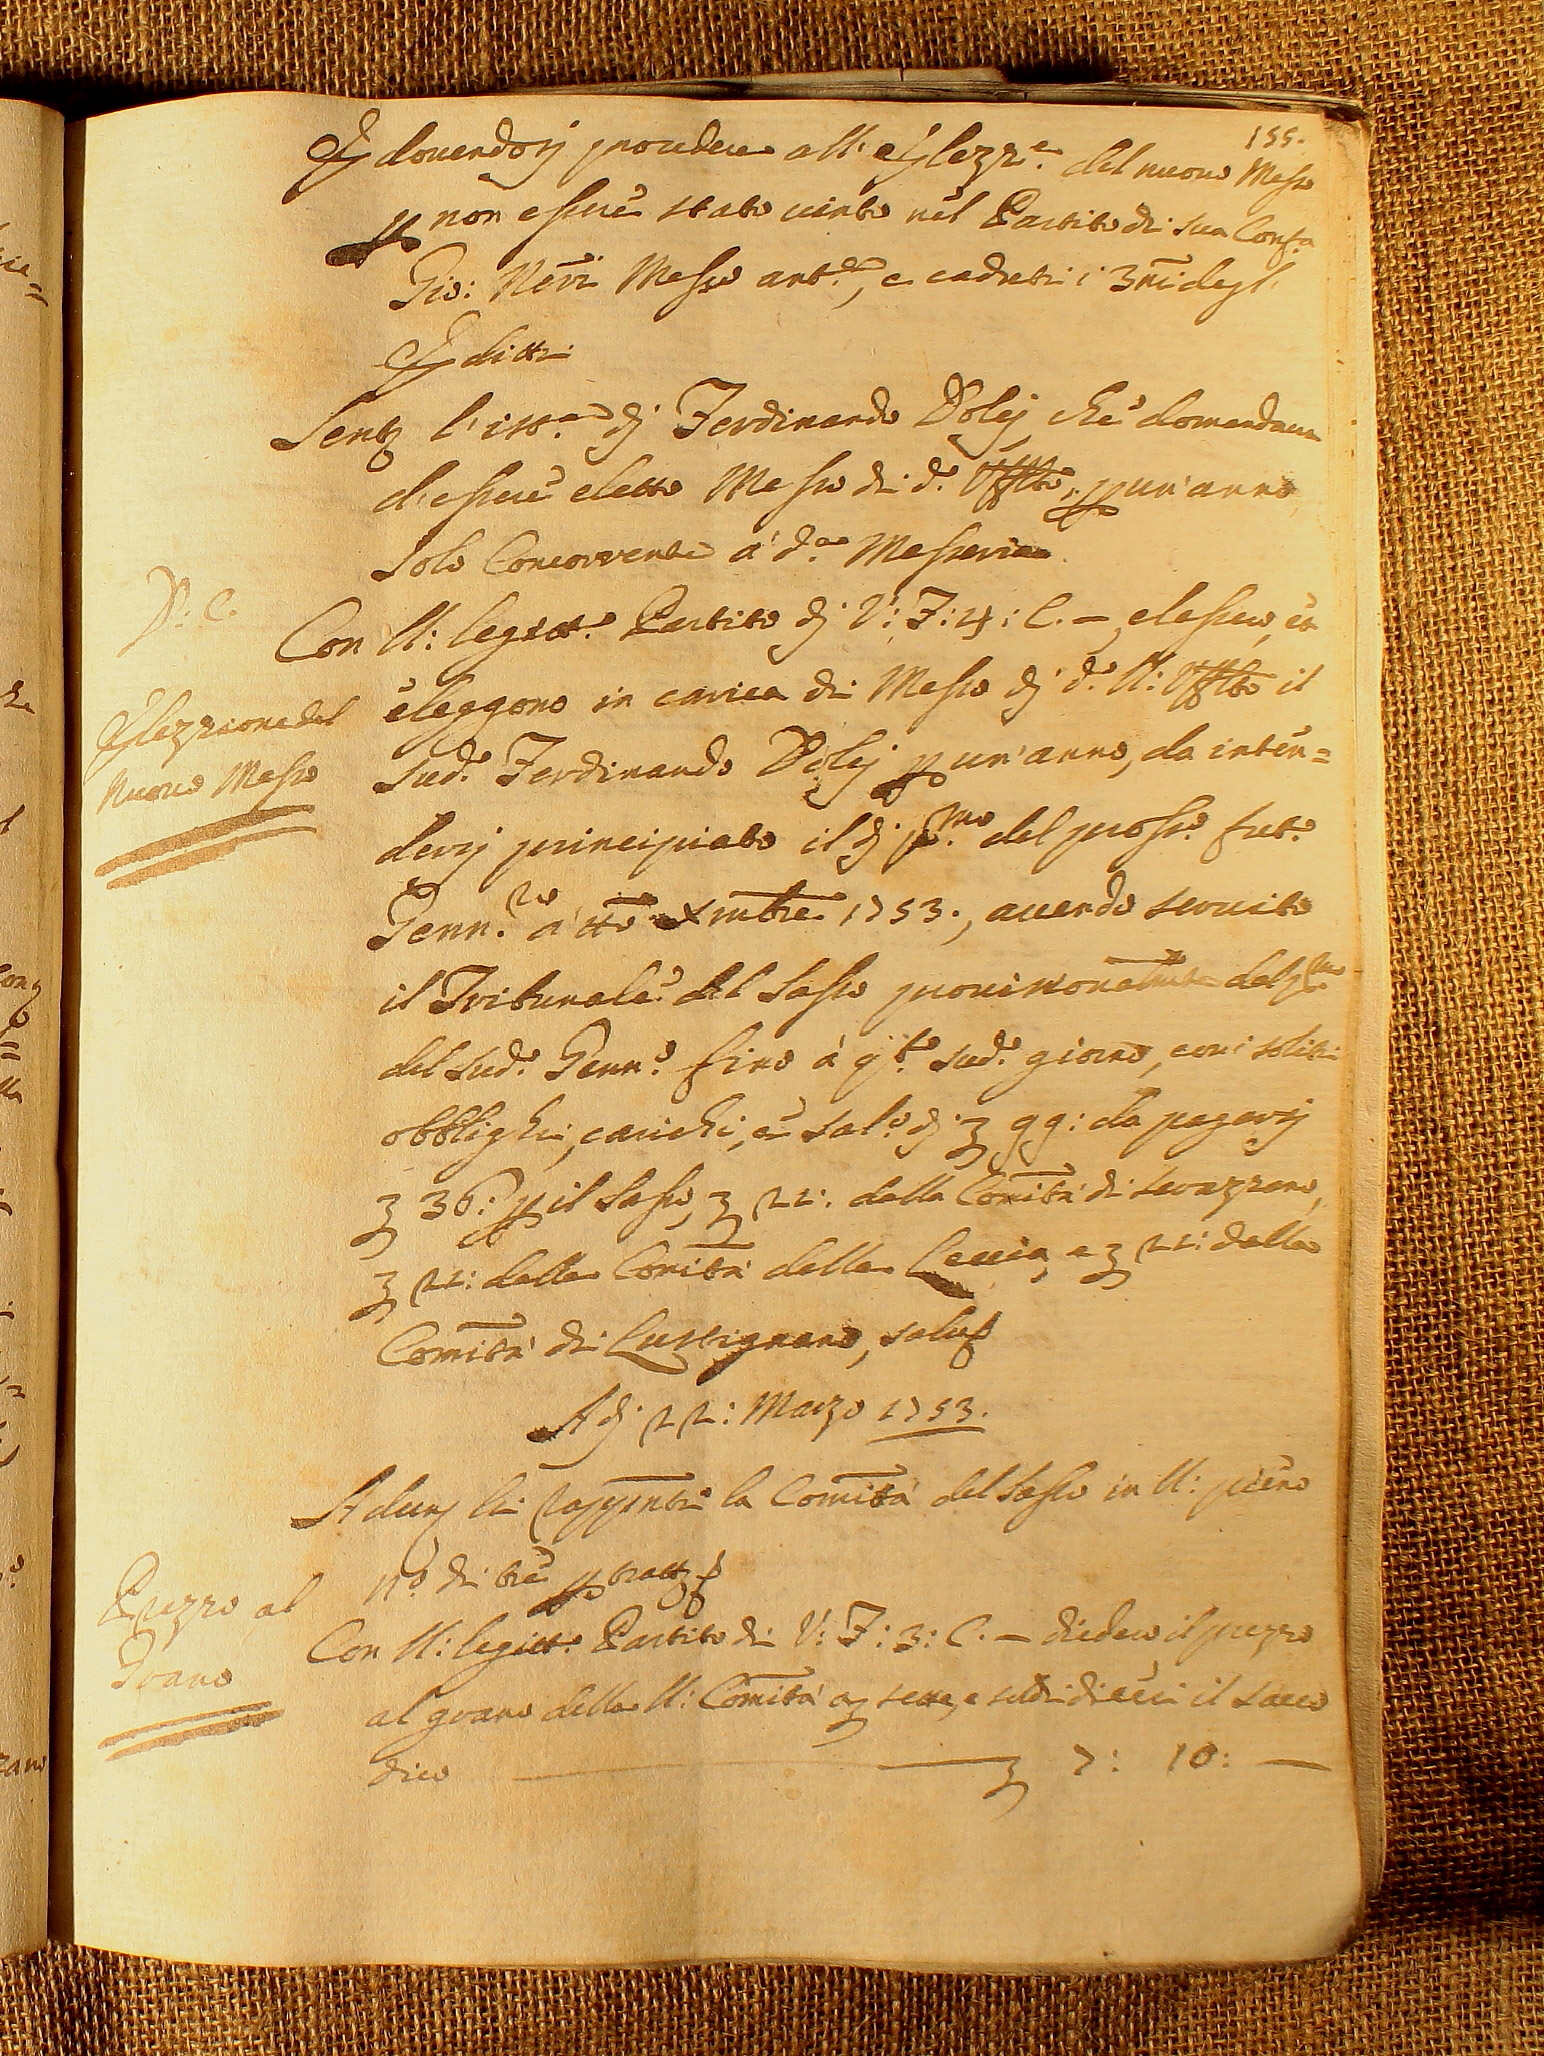 155.
E dovendosi provedere all' Elezz.e del nuovo Messo
p non essere stato vinto nel Partito di sua Conf.a
Gio: Neri Messo ant.o, e caduti i 3ni degl'
Editti
Sent l'ist.a di Ferdinando Polej che domandava
d'essere eletto Messo di d.o Uffitio, p un'anno
solo Concorrente à d.a Messeria
P: C.
Con U: legitt.o Partito dj V: F: 4: C. — elessero, et
eleggono in carica di Messo dj d.o U: Uffitio il
Elezzione del
Nuovo Messo
sud.o Ferdinando Polej p un'anno, da inten=
dersi principiato il dj p.mo del pross.o fut.o
Genn.ro à tto Xmbre 1753., avendo servito
il Tribunale del Sasso provisionalmte dal p.mo
del sud.o Genn.o fino à q.to sud.o giorno, con i soliti
obblighi, carichi, e sal.o dj 99: da pagarsi
36: p il Sasso, 21: dalla Comità di Serazzano,
21: dalla Comità della Leccia, e 21: dalla
Comità di Lustignano, salvo
A dj 22: Marzo 1753.
Adun li Rapp̄nti la Comità del Sasso in U: pieno
n.o di tre p tratt
Prezzo al
Grano
Con U: legitt.o Partito di V: F: 3: C. — diedero il prezzo
al grano della U: Comità a sette, e soldi dieci il sacco
dico — 7: 10: —